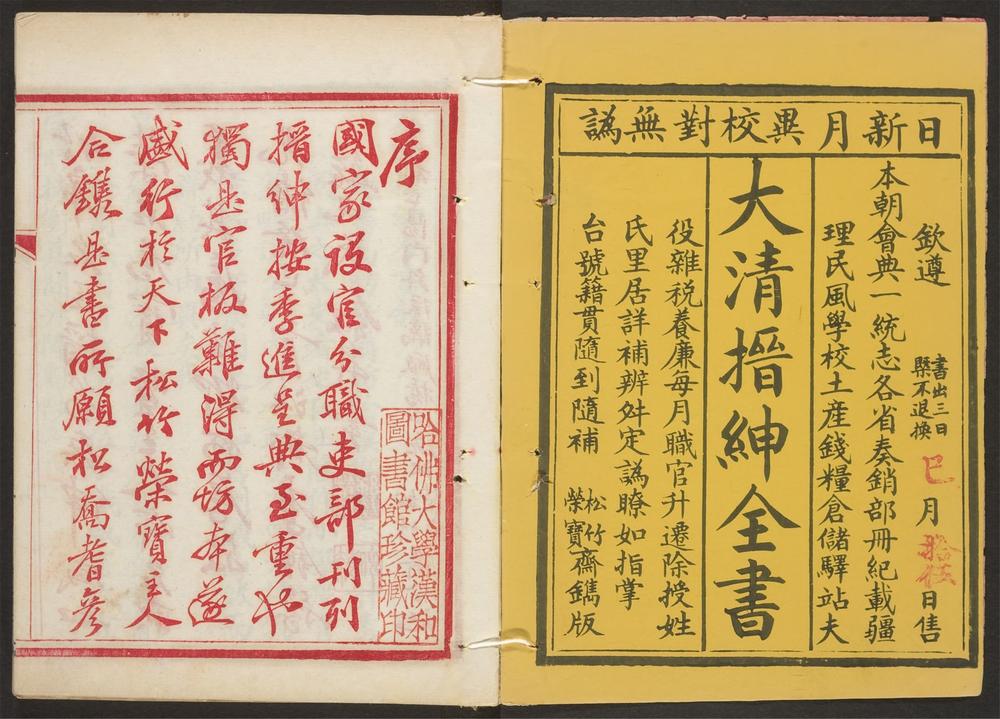 日新月異校對無譌
欽遵
書出三日
槩不退換
巳月拾伍日售
本朝會典一統志各省奏銷部冊紀載疆
理民風學校土產錢糧倉儲驛站夫
大清搢紳全書
役雜稅養廉每月職官升遷除授姓
氏里居詳補辨舛定譌瞭如指掌
台號籍貫隨到隨補
松竹
榮寶
齋鐫版
序
國家設官分職吏部刊列
搢紳按季進呈典至重也
獨是官板難得而坊本遂
盛行於天下松竹榮寶主人
合鐫是書所願松喬耆彥
哈佛大學漢和
圖書館珍藏印